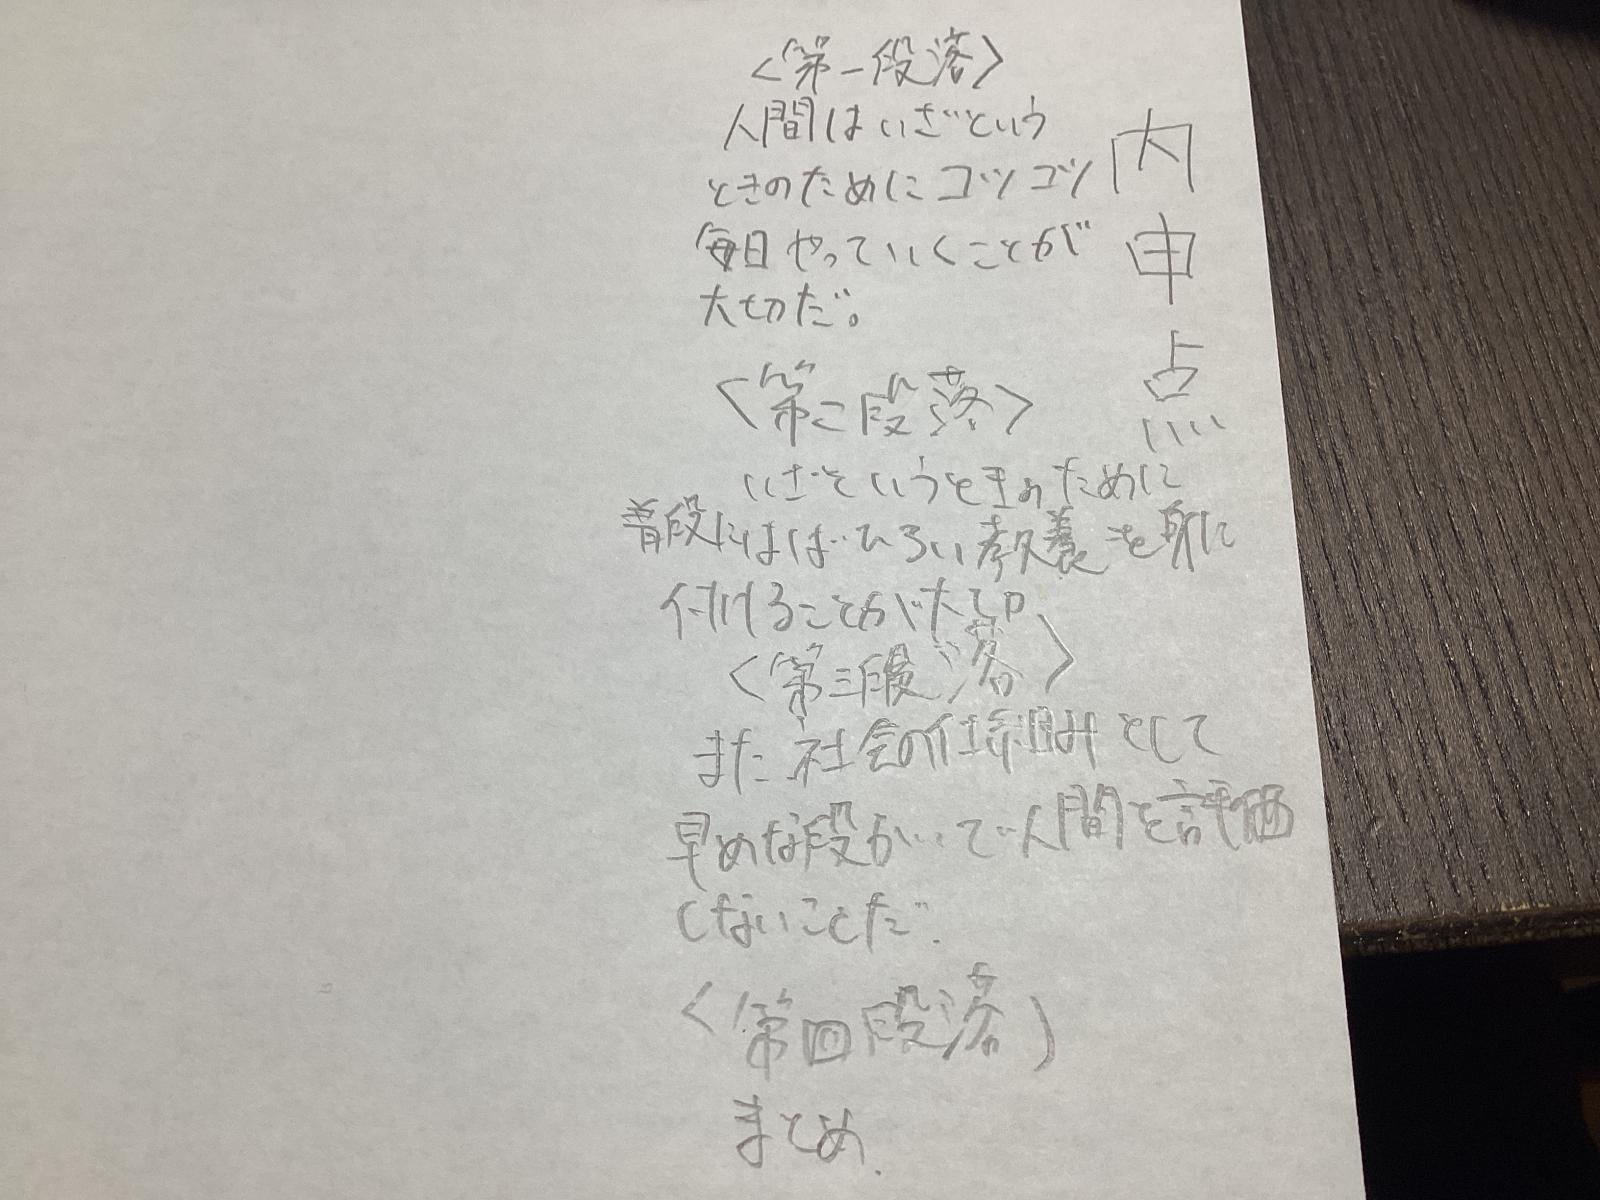 内申点
<第一段落>
人間はいざという
ときのためにコツコツ
毎日やっていくことが
大切だ。
<第二段落>
いざというときのために
普段にはばひろい教養を身に
付けることが大切
<第三段落>
また社会の仕組みとして
早めな段かいで人間を評価
しないことだ.
<第四段落)
まとめ.